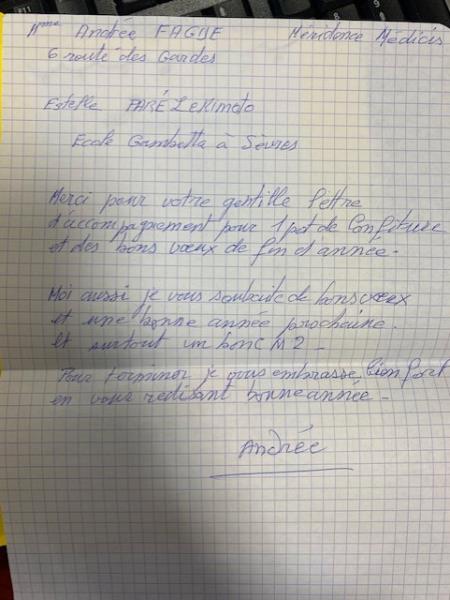 Mme Andrée FAGUE Résidence Médicis
6 route des Gardes
Estelle FARÉ
Ecole Gambetta à Sèvres
Merci pour votre gentille lettre
d'accompagnement pour 1 pot de Confiture
et des bons voeux de fin d'année -
Moi aussi je vous souhaite de bons voeux
et une bonne année prochaine.
Et surtout un bon CM2 -
Pour terminer je vous embrasse bien fort
en vous redisant bonne année -
Andrée